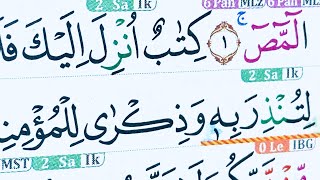 6 Pan MLZ 6 Pan MLZ 2 Sa Ik
الٓمٓصٓ ۝١ ج كِتٰبٌ اُنْزِلَ اِلَيْكَ فَلَا
2 Sa Ik
لِتُنْذِرَ بِهٖ وَذِكْرٰى لِلْمُؤْمِنِ
MST 2 Sa Ik 0 Le IBG